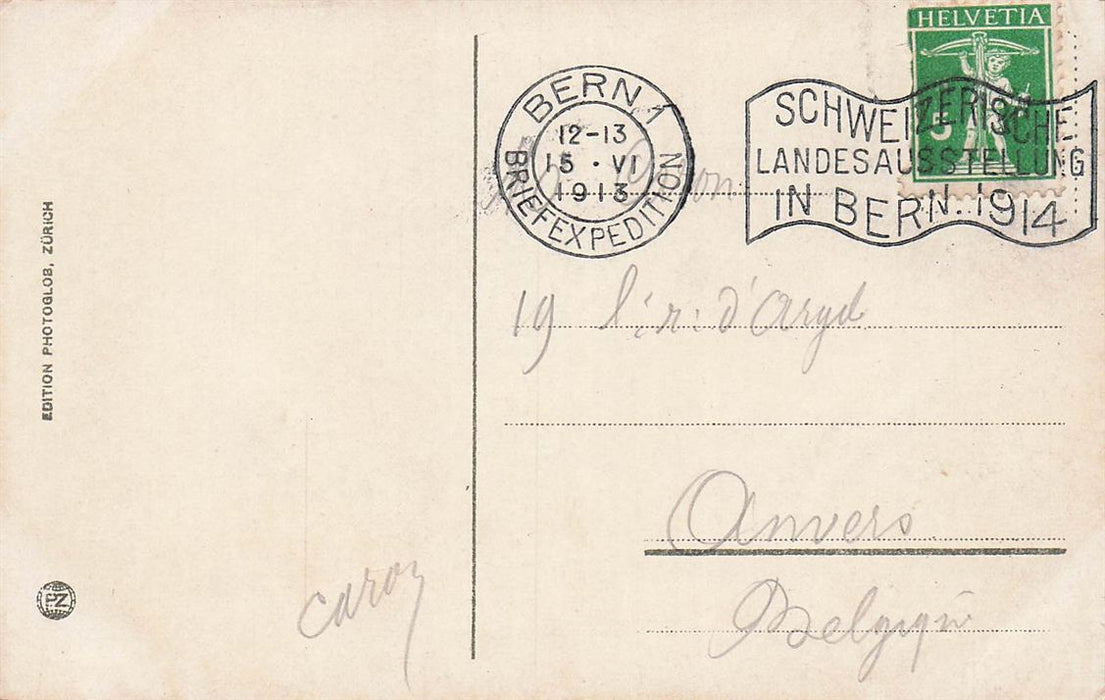 HELVETIA
5
BERN 1
12-13
15 · VI
1913
BRIEFEXPEDITION
SCHWEIZERISCHE
LANDESAUSSTELLUNG
IN BERN 1914
19 l: r: d'Argd
Anvers
Belgique
EDITION PHOTOGLOB, ZÜRICH
PZ